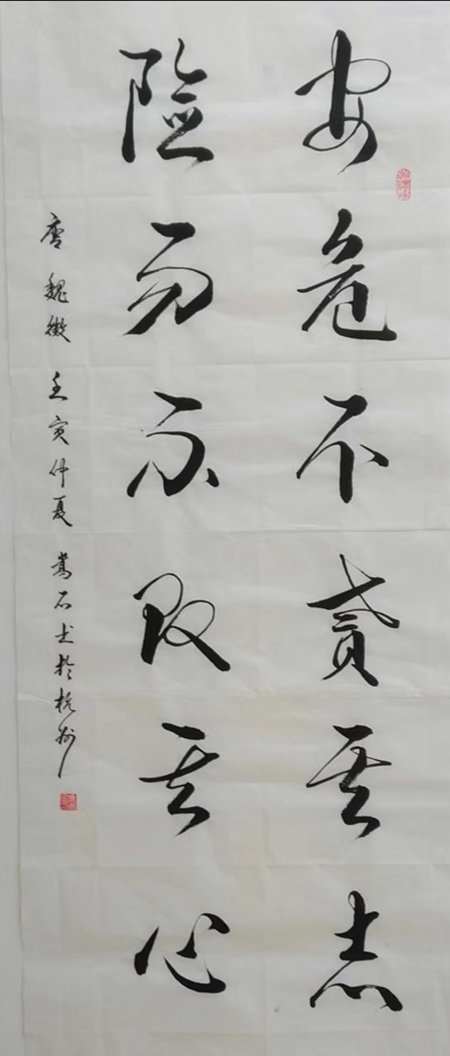 安危不贰其志
险易不改其心
唐 魏徵 壬寅仲夏 嵩石书于杭州